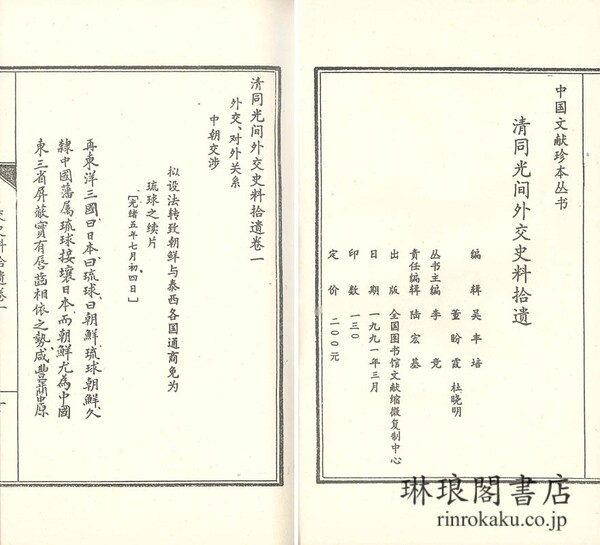 中国文献珍本丛书
清同光间外交史料拾遗
编辑 吴丰培
董盼霞 杜晓明
丛书主编 李竞
责任编辑 陆宏基
出版 全国图书馆文献缩微复制中心
日期 一九九一年三月
印数 一三〇
定价 二〇〇元
清同光间外交史料拾遗卷一
外交、对外关系
中朝交涉
拟设法转致朝鲜与泰西各国通商免为
琉球之续片
[光绪五年七月初四日]
再東洋三國曰日本曰琉球曰朝鮮琉球朝鮮久
隸中國藩属琉球接壤日本而朝鮮尤為中國
東三省屏蔽實有唇齒相依之勢咸豐間中原
史料拾遗卷一
琳琅閣書店
rinrokaku.co.jp